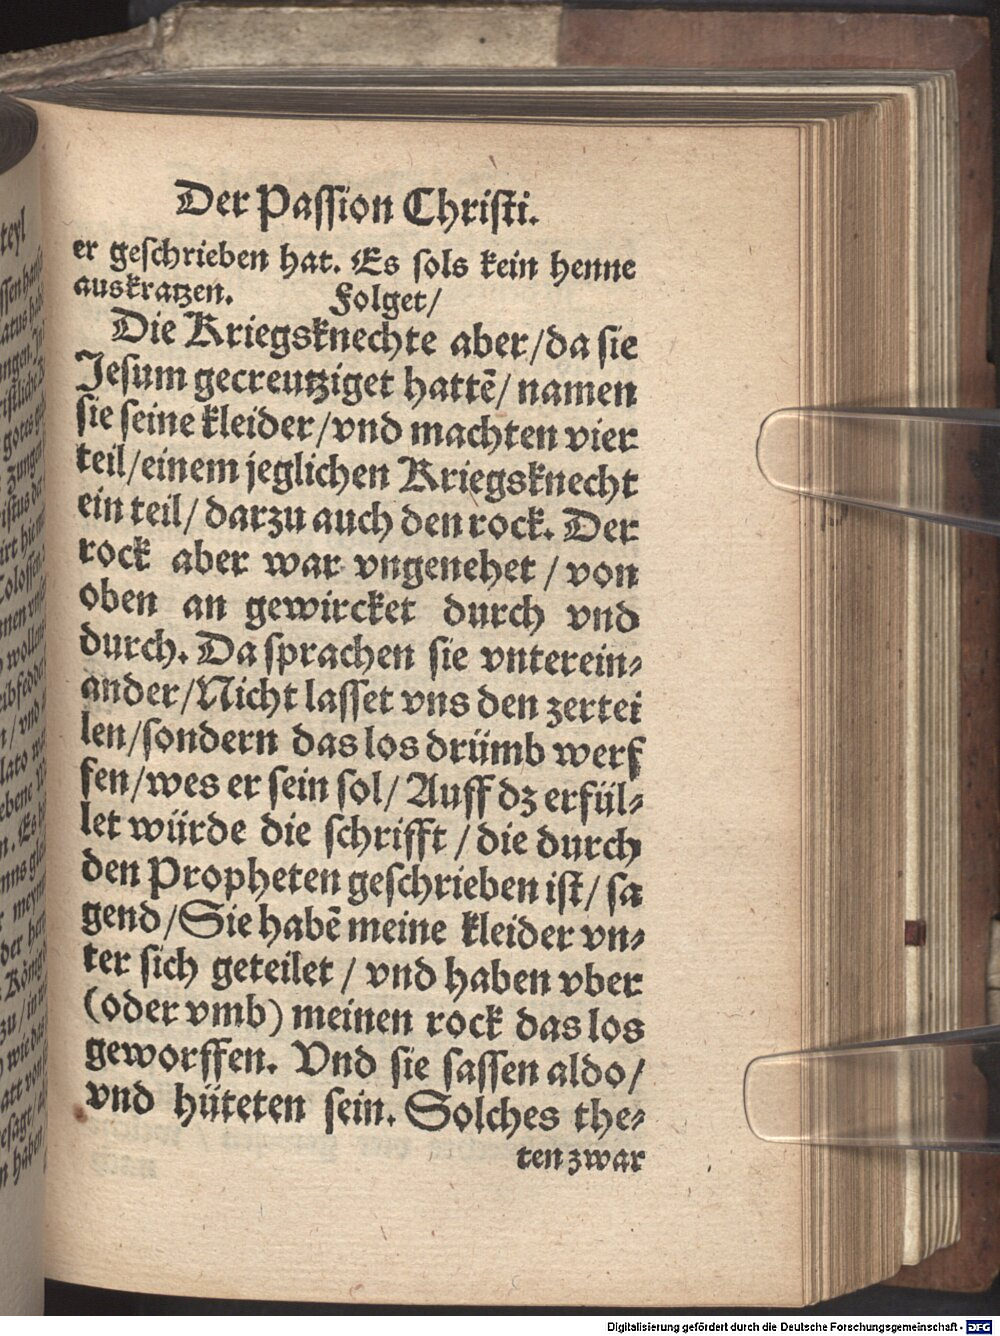 Der Passion Christi.
er geschrieben hat. Es sols kein henne
auskratzen. Folget/
Die Kriegsknechte aber/da sie
Jesum gecreutziget hattē/ namen
sie seine kleider/vnd machten vier
teil/einem jeglichen Kriegsknecht
ein teil/ darzu auch den rock. Der
rock aber war vngenehet / von
oben an gewircket durch vnd
durch. Da sprachen sie vnterein⸗
ander/Nicht lasset vns den zertei
len/sondern das los drümb werf
fen/wes er sein sol/ Auff dz erfül⸗
let würde die schrifft / die durch
den Propheten geschrieben ist/ sa
gend/Sie habē meine kleider vn⸗
ter sich geteilet / vnd haben vber
(oder vmb) meinen rock das los
geworffen. Vnd sie sassen aldo/
vnd hüteten sein. Solches the⸗
ten zwar
Digitalisierung gefördert durch die Deutsche Forschungsgemeinschaft - DFG